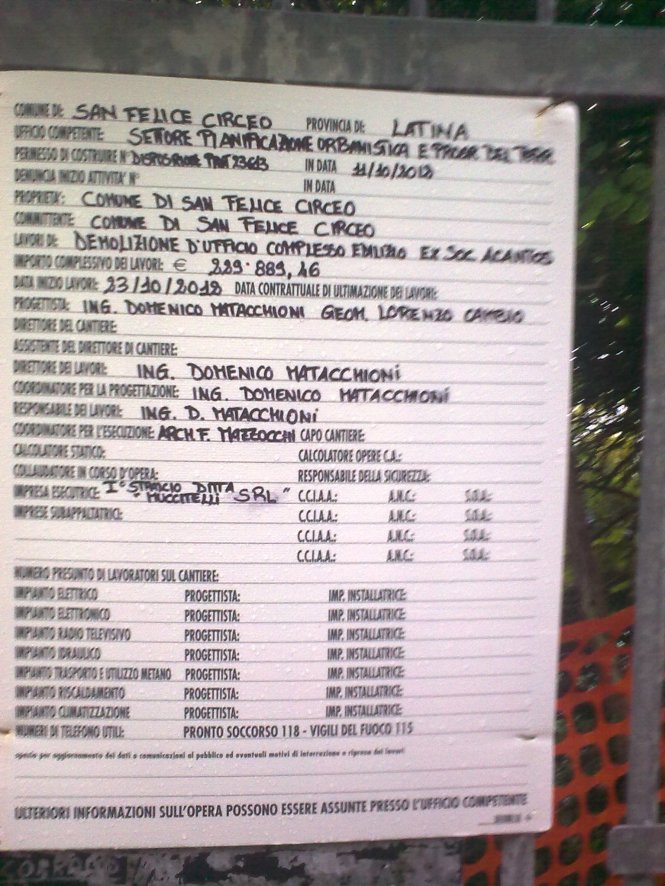 COMUNE DI: SAN FELICE CIRCEO PROVINCIA DI: LATINA
UFFICIO COMPETENTE: SETTORE PIANIFICAZIONE URBANISTICA E PROGR DEL TERR
PERMESSO DI COSTRUIRE N° DISPOSIZIONE PROT 23613 IN DATA 11/10/2012
DENUNCIA INIZIO ATTIVITA' N° IN DATA
PROPRIETA': COMUNE DI SAN FELICE CIRCEO
COMMITTENTE: COMUNE DI SAN FELICE CIRCEO
LAVORI DI: DEMOLIZIONE D'UFFICIO COMPLESSO EDILIZIO EX SOC. ACANTOS
IMPORTO COMPLESSIVO DEI LAVORI: € 229.889,46
DATA INIZIO LAVORI: 23/10/2012 DATA CONTRATTUALE DI ULTIMAZIONE DEI LAVORI:
PROGETTISTA: ING. DOMENICO MATACCHIONI GEOM. LORENZO CAMBIO
DIRETTORE DEL CANTIERE:
ASSISTENTE DEL DIRETTORE DI CANTIERE:
DIRETTORE DEI LAVORI: ING. DOMENICO MATACCHIONI
COORDINATORE PER LA PROGETTAZIONE: ING. DOMENICO MATACCHIONI
RESPONSABILE DEI LAVORI: ING. D. MATACCHIONI
COORDINATORE PER L'ESECUZIONE: ARCH F. MAZZOCCHI CAPO CANTIERE:
CALCOLATORE STATICO: CALCOLATORE OPERE C.A.:
COLLAUDATORE IN CORSO D'OPERA: RESPONSABILE DELLA SICUREZZA:
IMPRESA ESECUTRICE: I° STRALCIO DITTA "MUCCITELLI SRL" C.C.I.A.A.: A.N.C.: S.O.A.:
IMPRESE SUBAPPALTATRICI: C.C.I.A.A.: A.N.C.: S.O.A.:
C.C.I.A.A.: A.N.C.: S.O.A.:
C.C.I.A.A.: A.N.C.: S.O.A.:
NUMERO PRESUNTO DI LAVORATORI SUL CANTIERE:
IMPIANTO ELETTRICO PROGETTISTA: IMP. INSTALLATRICE:
IMPIANTO ELETTRONICO PROGETTISTA: IMP. INSTALLATRICE:
IMPIANTO RADIO TELEVISIVO PROGETTISTA: IMP. INSTALLATRICE:
IMPIANTO IDRAULICO PROGETTISTA: IMP. INSTALLATRICE:
IMPIANTO TRASPORTO E UTILIZZO METANO PROGETTISTA: IMP. INSTALLATRICE:
IMPIANTO RISCALDAMENTO PROGETTISTA: IMP. INSTALLATRICE:
IMPIANTO CLIMATIZZAZIONE PROGETTISTA: IMP. INSTALLATRICE:
NUMERI DI TELEFONO UTILI: PRONTO SOCCORSO 118 - VIGILI DEL FUOCO 115
spazio per aggiornamento dei dati o comunicazioni al pubblico ed eventuali motivi di interruzione o ripresa dei lavori
ULTERIORI INFORMAZIONI SULL'OPERA POSSONO ESSERE ASSUNTE PRESSO L'UFFICIO COMPETENTE